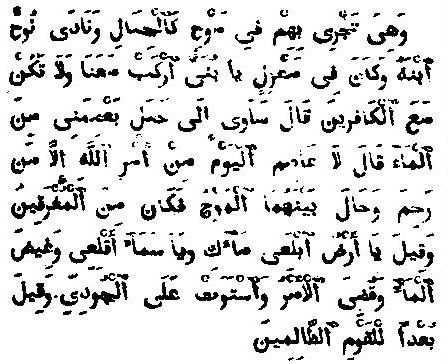 وَهِىَ تَجْرِى بِهِمْ فِي مَوْجٍ كَٱلْجِبَالِ وَنَادَى نُوحٌ
ٱبْنَهُ وَكَانَ فِى مَعْزِلٍ يَا بُنَىَّ ٱرْكَبْ مَعَنَا وَلَا تَكُنْ
مَعَ ٱلْكَافِرِينَ قَالَ سَآوِى الَى جَبَلٍ يَعْصِمُنِى مِنَ
ٱلْمَاءِ قَالَ لَا عَاصِمَ ٱلْيَوْمَ مِنْ أَمْرِ ٱللَّهِ الَّا مَن
رَحِمَ وَحَالَ بَيْنَهُمَا ٱلْمَوْجُ فَكَانَ مِنَ ٱلْمُغْرَقِينَ
وَقِيلَ يَا أَرْضُ ٱبْلَعِى مَاءَكِ وَيَا سَمَاءُ أَقْلِعِى وَغِيضَ
ٱلْمَاءُ وَقُضِىَ ٱلْأَمْرُ وَٱسْتَوَتْ عَلَى ٱلْجُودِيِّ وَقِيلَ
بُعْدًا لِلْقَوْمِ ٱلظَّالِمِينَ